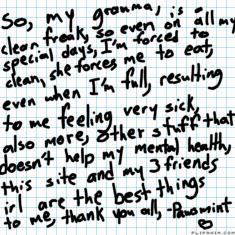 So, my gramma, is a
clean freak, so even on all my
special days, I'm forced to
clean, she forces me to eat,
even when I'm full, resulting
to me feeling very sick,
also more, other stuff that
doesn't help my mental health,
this site and my 3 friends
irl are the best things
to me, thank you all, -Pawsmint
FLIPANIM.COM